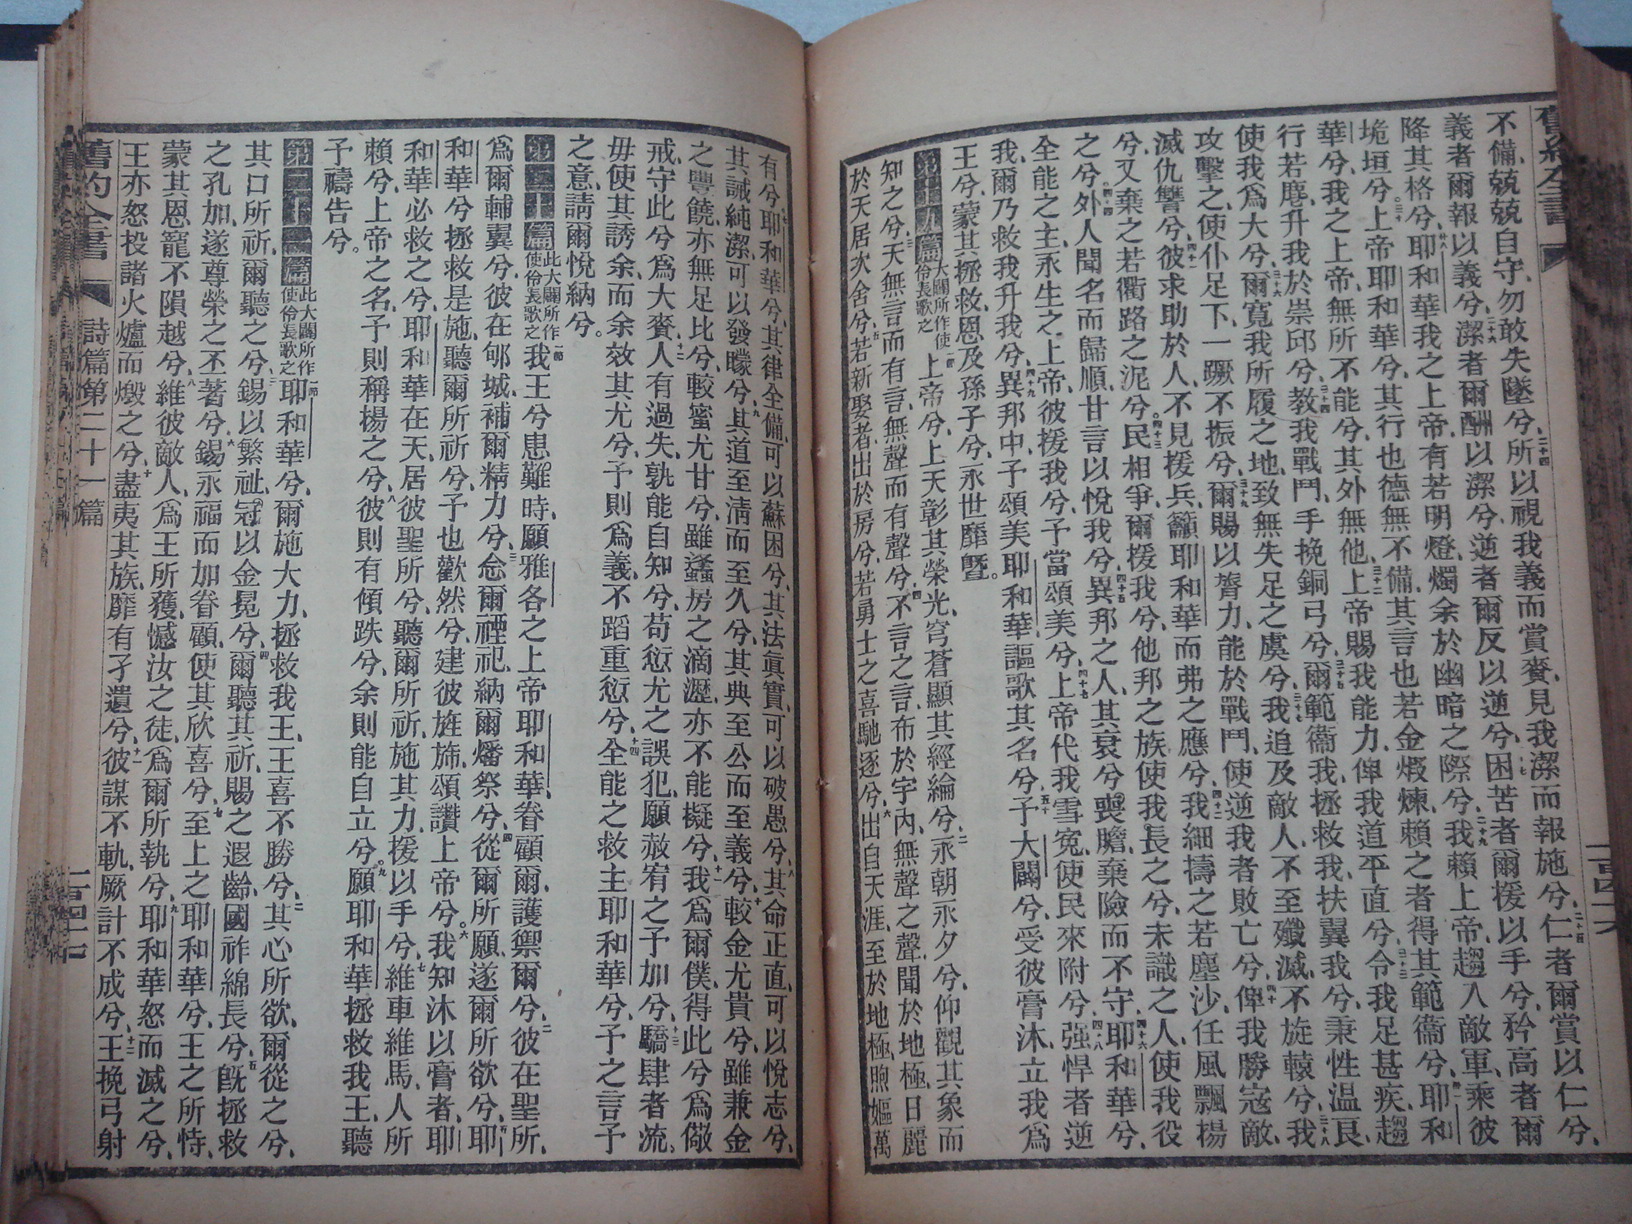 舊約全書
不備、兢兢自守、勿敢失墜兮、二十四所以視我義而賞賚、見我潔而報施兮、二十五仁者爾賞以仁兮、
義者爾報以義兮、二十六潔者爾酬以潔兮、逆者爾反以逆兮、二十七困苦者爾援以手兮、矜高者爾
降其格兮、二十八耶和華我之上帝、有若明燈、燭余於幽暗之際兮、二十九我賴上帝、趨入敵軍、乘彼
垝垣兮、三十上帝耶和華兮、其行也德無不備、其言也若金煅煉、賴之者得其範衞兮、三十一耶和
華兮、我之上帝、無所不能兮、其外無他、三十二上帝賜我能力、俾我道平直兮、三十三令我足甚疾、趨
行若麀、升我於崇邱兮、三十四教我戰鬥、手挽銅弓兮、三十五爾範衞我、拯救我、扶翼我兮、秉性温良、
使我爲大兮、三十六爾寬我所履之地、致無失足之虞兮、三十七我追及敵人、不至殲滅、不旋轅兮、三十八我
攻擊之、使仆足下、一蹶不振兮、三十九爾賜以膂力、能於戰鬥、使逆我者敗亡兮、四十俾我勝寇敵、
滅仇讐兮、四十一彼求助於人、不見援兵、籲耶和華而弗之應兮、四十二我細擣之若塵沙、任風飄楊
兮、又棄之若衢路之泥兮、四十三民相爭、爾援我兮、他邦之族、使我長之兮、未識之人、使我役
之兮、四十四外人聞名而歸順、甘言以悅我兮、四十五異邦之人、其衰兮、喪膽棄險而不守、四十六耶和華兮、
全能之主、永生之上帝、彼援我兮、予當頌美兮、四十七上帝代我雪寃、使民來附兮、四十八强悍者逆
我、爾乃救我升我兮、四十九異邦中、予頌美耶和華、謳歌其名兮、五十予大闢兮、受彼膏沐、立我爲
王兮、蒙其拯救、恩及孫子兮、永世靡曁。
第十九篇 此大闢所作使伶長歌之 一節上帝兮、上天彰其榮光、穹蒼顯其經綸兮、二永朝永夕兮、仰觀其象而
知之兮、三天無言而有言、無聲而有聲兮、四不言之言、布於宇內、無聲之聲、聞於地極、日麗
於天、居次舍兮、五若新娶者出於房兮、若勇士之喜馳逐兮、六出自天涯、至於地極、煦嫗萬
有兮、七耶和華兮、其律全備、可以蘇困兮、其法眞實、可以破愚兮、八其命正直、可以悅志兮、
其誡純潔、可以發矇兮、九其道至淸而至久兮、其典至公而至義兮、十較金尤貴兮、雖兼金
之豐饒、亦無足比兮、較蜜尤甘兮、雖蠭房之滴瀝、亦不能擬兮、十一我爲爾僕、得此兮爲儆
戒、守此兮爲大賚、十二人有過失、孰能自知兮、苟愆尤之誤犯、願赦宥之予加兮、十三驕肆者流、
毋使其誘余、而余效其尤兮、予則爲義、不蹈重愆兮、十四全能之救主耶和華兮、予之言、予
之意、請爾悅納兮。
第二十篇 此大闢所作使伶長歌之 一節我王兮患難時、願雅各之上帝耶和華、眷顧爾、護禦爾兮、二彼在聖所、
爲爾輔翼兮、彼在郇城、補爾精力兮、三念爾禋祀、納爾燔祭兮、四從爾所願、遂爾所欲兮、五耶
和華兮拯救是施、聽爾所祈兮、予也歡然兮、建彼旌旆、頌讚上帝兮。六我知沐以膏者、耶
和華必救之兮、耶和華在天、居彼聖所兮、聽爾所祈、施其力、援以手兮、七維車維馬、人所
賴兮、上帝之名、予則稱揚之兮、八彼則有傾跌兮、余則能自立兮。九願耶和華拯救我王、聽
予禱告兮。
第二十一篇 此大闢所作使伶長歌之 一節耶和華兮、爾施大力、拯救我王、王喜不勝兮、二其心所欲、爾從之兮、
其口所祈、爾聽之兮、三錫以繁祉、冠以金冕兮、四爾聽其祈、賜之遐齡、國祚綿長兮、五旣拯救
之孔加、遂尊榮之丕著兮、六錫永福而加眷顧、使其欣喜兮、七至上之耶和華兮、王之所恃、
蒙其恩寵不隕越兮、八維彼敵人、爲王所獲、憾汝之徒、爲爾所執兮、九耶和華怒而滅之兮、
王亦怒投諸火爐而燬之兮、十盡夷其族、靡有孑遺兮、十一彼謀不軌、厥計不成兮、十二王挽弓射
舊約全書 詩篇第二十一篇